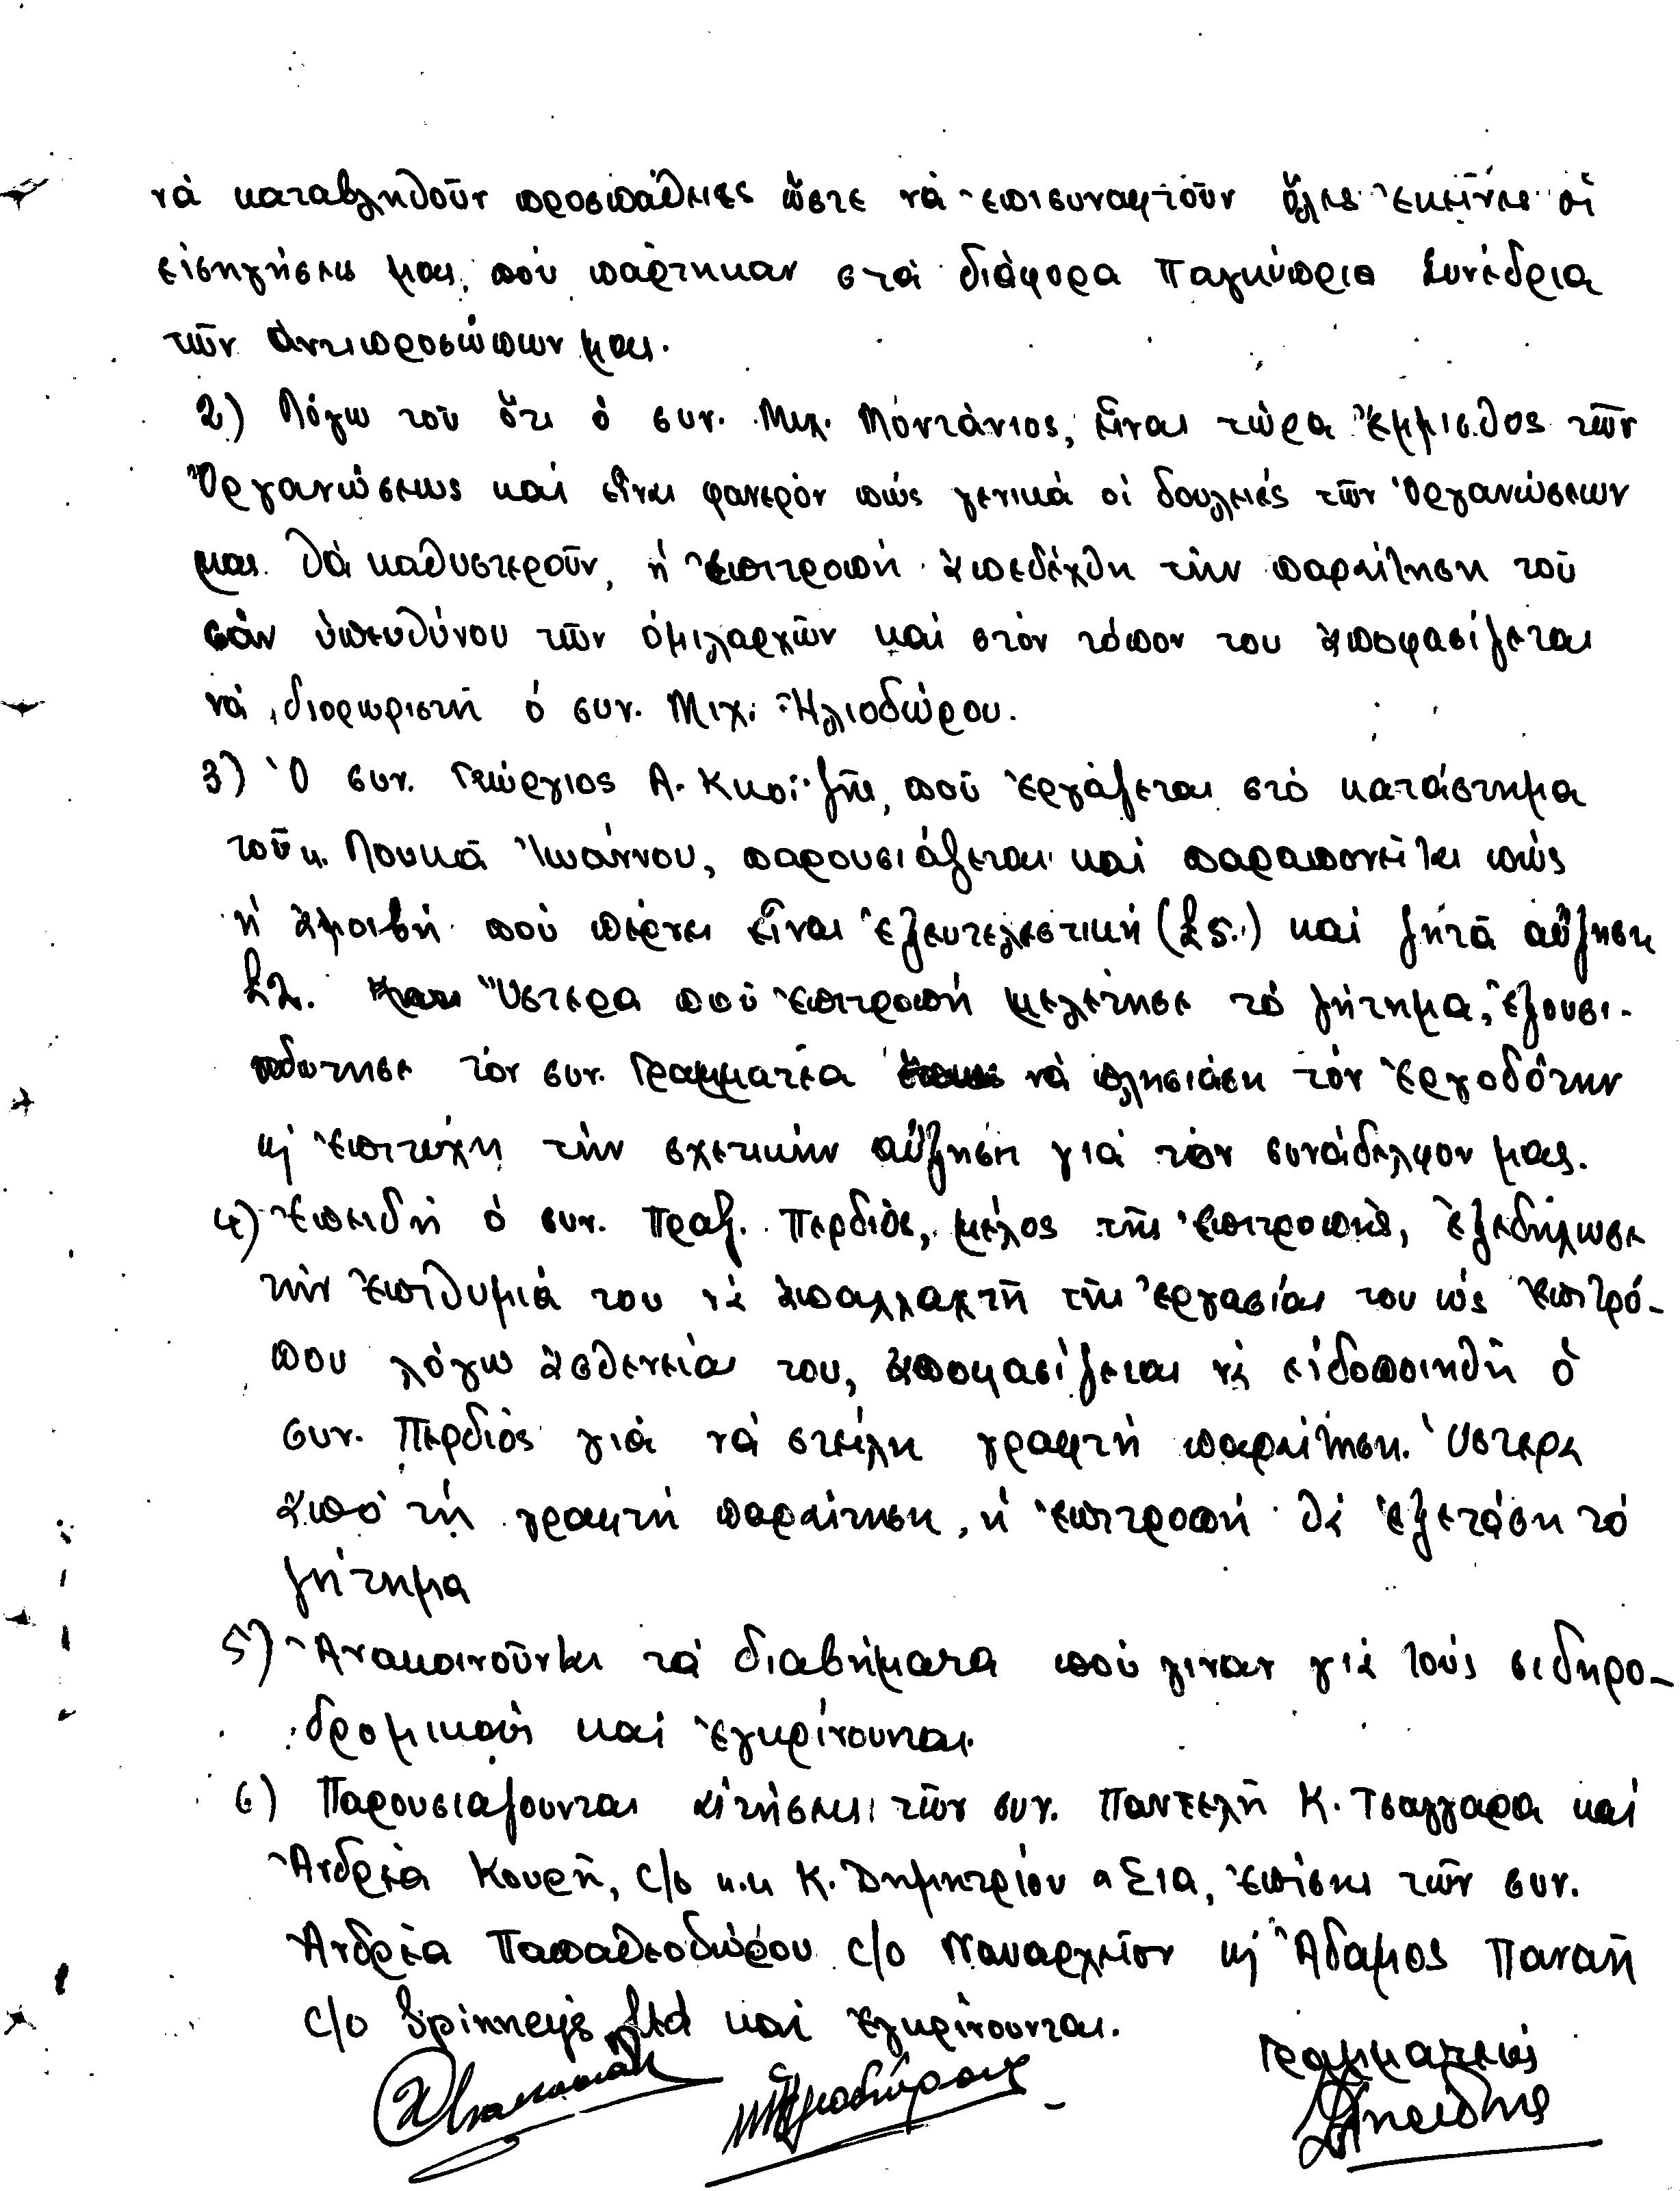 νὰ καταβληθοῦν προσπάθειες ὥστε νὰ ἐπισυναφτοῦν ὅλες ἐκεῖνες οἱ
εἰσηγήσεις μας, ποὺ πάρτηκαν στὰ διάφορα Παγκύπρια Συνέδρια
τῶν ἀντιπροσώπων μας.
2) Λόγω τοῦ ὅτι ὁ συν. Μιχ. Μοντάνιος, εἶναι τώρα ἔμμισθος τῶν
Ὀργανώσεως καὶ εἶναι φανερὸν πὼς γενικὰ οἱ δουλειὲς τῶν Ὀργανώσεων
μας θὰ καθυστεροῦν, ἡ ἐπιτροπὴ ἀπεδέχθη τὴν παραίτηση τοῦ
σὰν ὑπευθύνου τῶν ὁμιλαρχῶν καὶ στὸν τόπον του ἀποφασίζεται
νὰ διορωριστῆ ὁ συν. Μιχ. Ἡλιοδώρου.
3) Ὁ συν. Γεώργιος Α. Κκοϊζῆς, ποὺ ἐργάζεται στὸ κατάστημα
τοῦ κ. Λουκᾶ Ἰωάννου, παρουσιάζεται καὶ παραπονεῖται πὼς
ἡ ἀμοιβὴ ποὺ πέρνει εἶναι ἐξευτελεστικὴ (£5.) καὶ ζητᾶ αὔξηση
£2. Ὕστερα ποὺ ἐπιτροπὴ μελέτησε τὸ ζήτημα, ἐξουσι-
οδότησε τὸν συν. Γραμματέα νὰ πλησιάση τὸν ἐργοδότην
κι ἐπιτύχη τὴν σχετικὴν αὔξηση γιὰ τὸν συνάδελφον μας.
4) Ἐπειδὴ ὁ συν. Πραξ. Περδιὸς, μέλος τῆς ἐπιτροπῆς, ἐξεδήλωσε
τὴν ἐπιθυμιὰ του νὰ ἀπαλλαχτῆ τῆς ἐργασίας του ὡς ἐπιτρό-
που λόγω ἀσθενείας του, ἀποφασίζεται νὰ εἰδοποιηθῆ ὁ
συν. Περδιὸς γιὰ νὰ στείλη γραφτὴ παραίτηση. Ὕστερα
ἀπὸ τὴ γραφτὴ παραίτηση, ἡ ἐπιτροπὴ θὰ ἐξετάση τὸ
ζήτημα
5) Ἀνακοινοῦνται τὰ διαβήματα ποὺ γιναν γιὰ τοὺς σιδηρο-
δρομικοὺς καὶ ἐγκρίνουνται.
6) Παρουσιαζουνται αἰτήσεις τῶν συν. Παντελῆ Κ. Τσαγγαρα καὶ
Ἀνδρέα Κουρῆ, c/o κ.κ Κ. Δημητρίου & Σια, ἐπίσης τῶν συν.
Ἀνδρέα Παπαθεοδώρου c/o Ναυαρχεῖον κι Ἀδαμος Παναῆ
c/o Spinneys Ltd καὶ ἐγκρίνουνται.
Γραμματεύς
ΜΗλιοδώρου